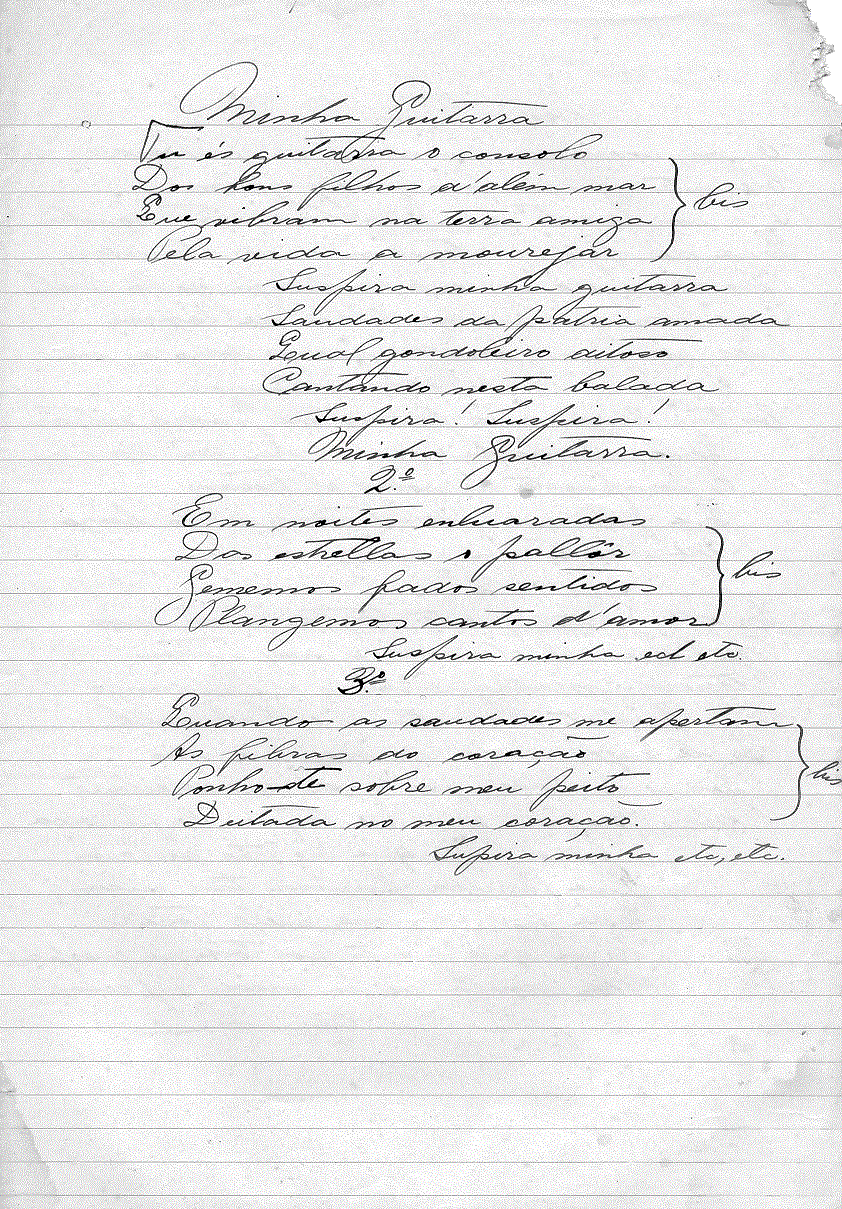 Minha Guitarra
Tu és guitarra o consolo
Dos bons filhos d'além mar
Que vibram na terra amiga
Pela vida a mourejar
bis
Suspira minha guitarra
Saudades da patria amada
Qual gondoleiro ditoso
Cantando nesta balada
Suspira! Suspira!
Minha Guitarra.
2.º
Em noites enluaradas
Das estrellas o pallôr
Gememos fados sentidos
Plangemos cantos d'amor
bis
Suspira minha etc.
3.º
Quando as saudades me apertam
As fibras do coração
Ponho-te sobre meu peito
Deitada no meu coração.
bis
Supira minha etc, etc.